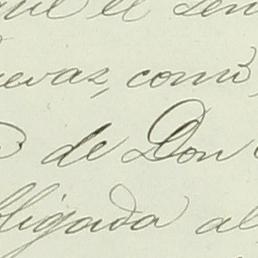 el
evas, como
de Don
bligada al